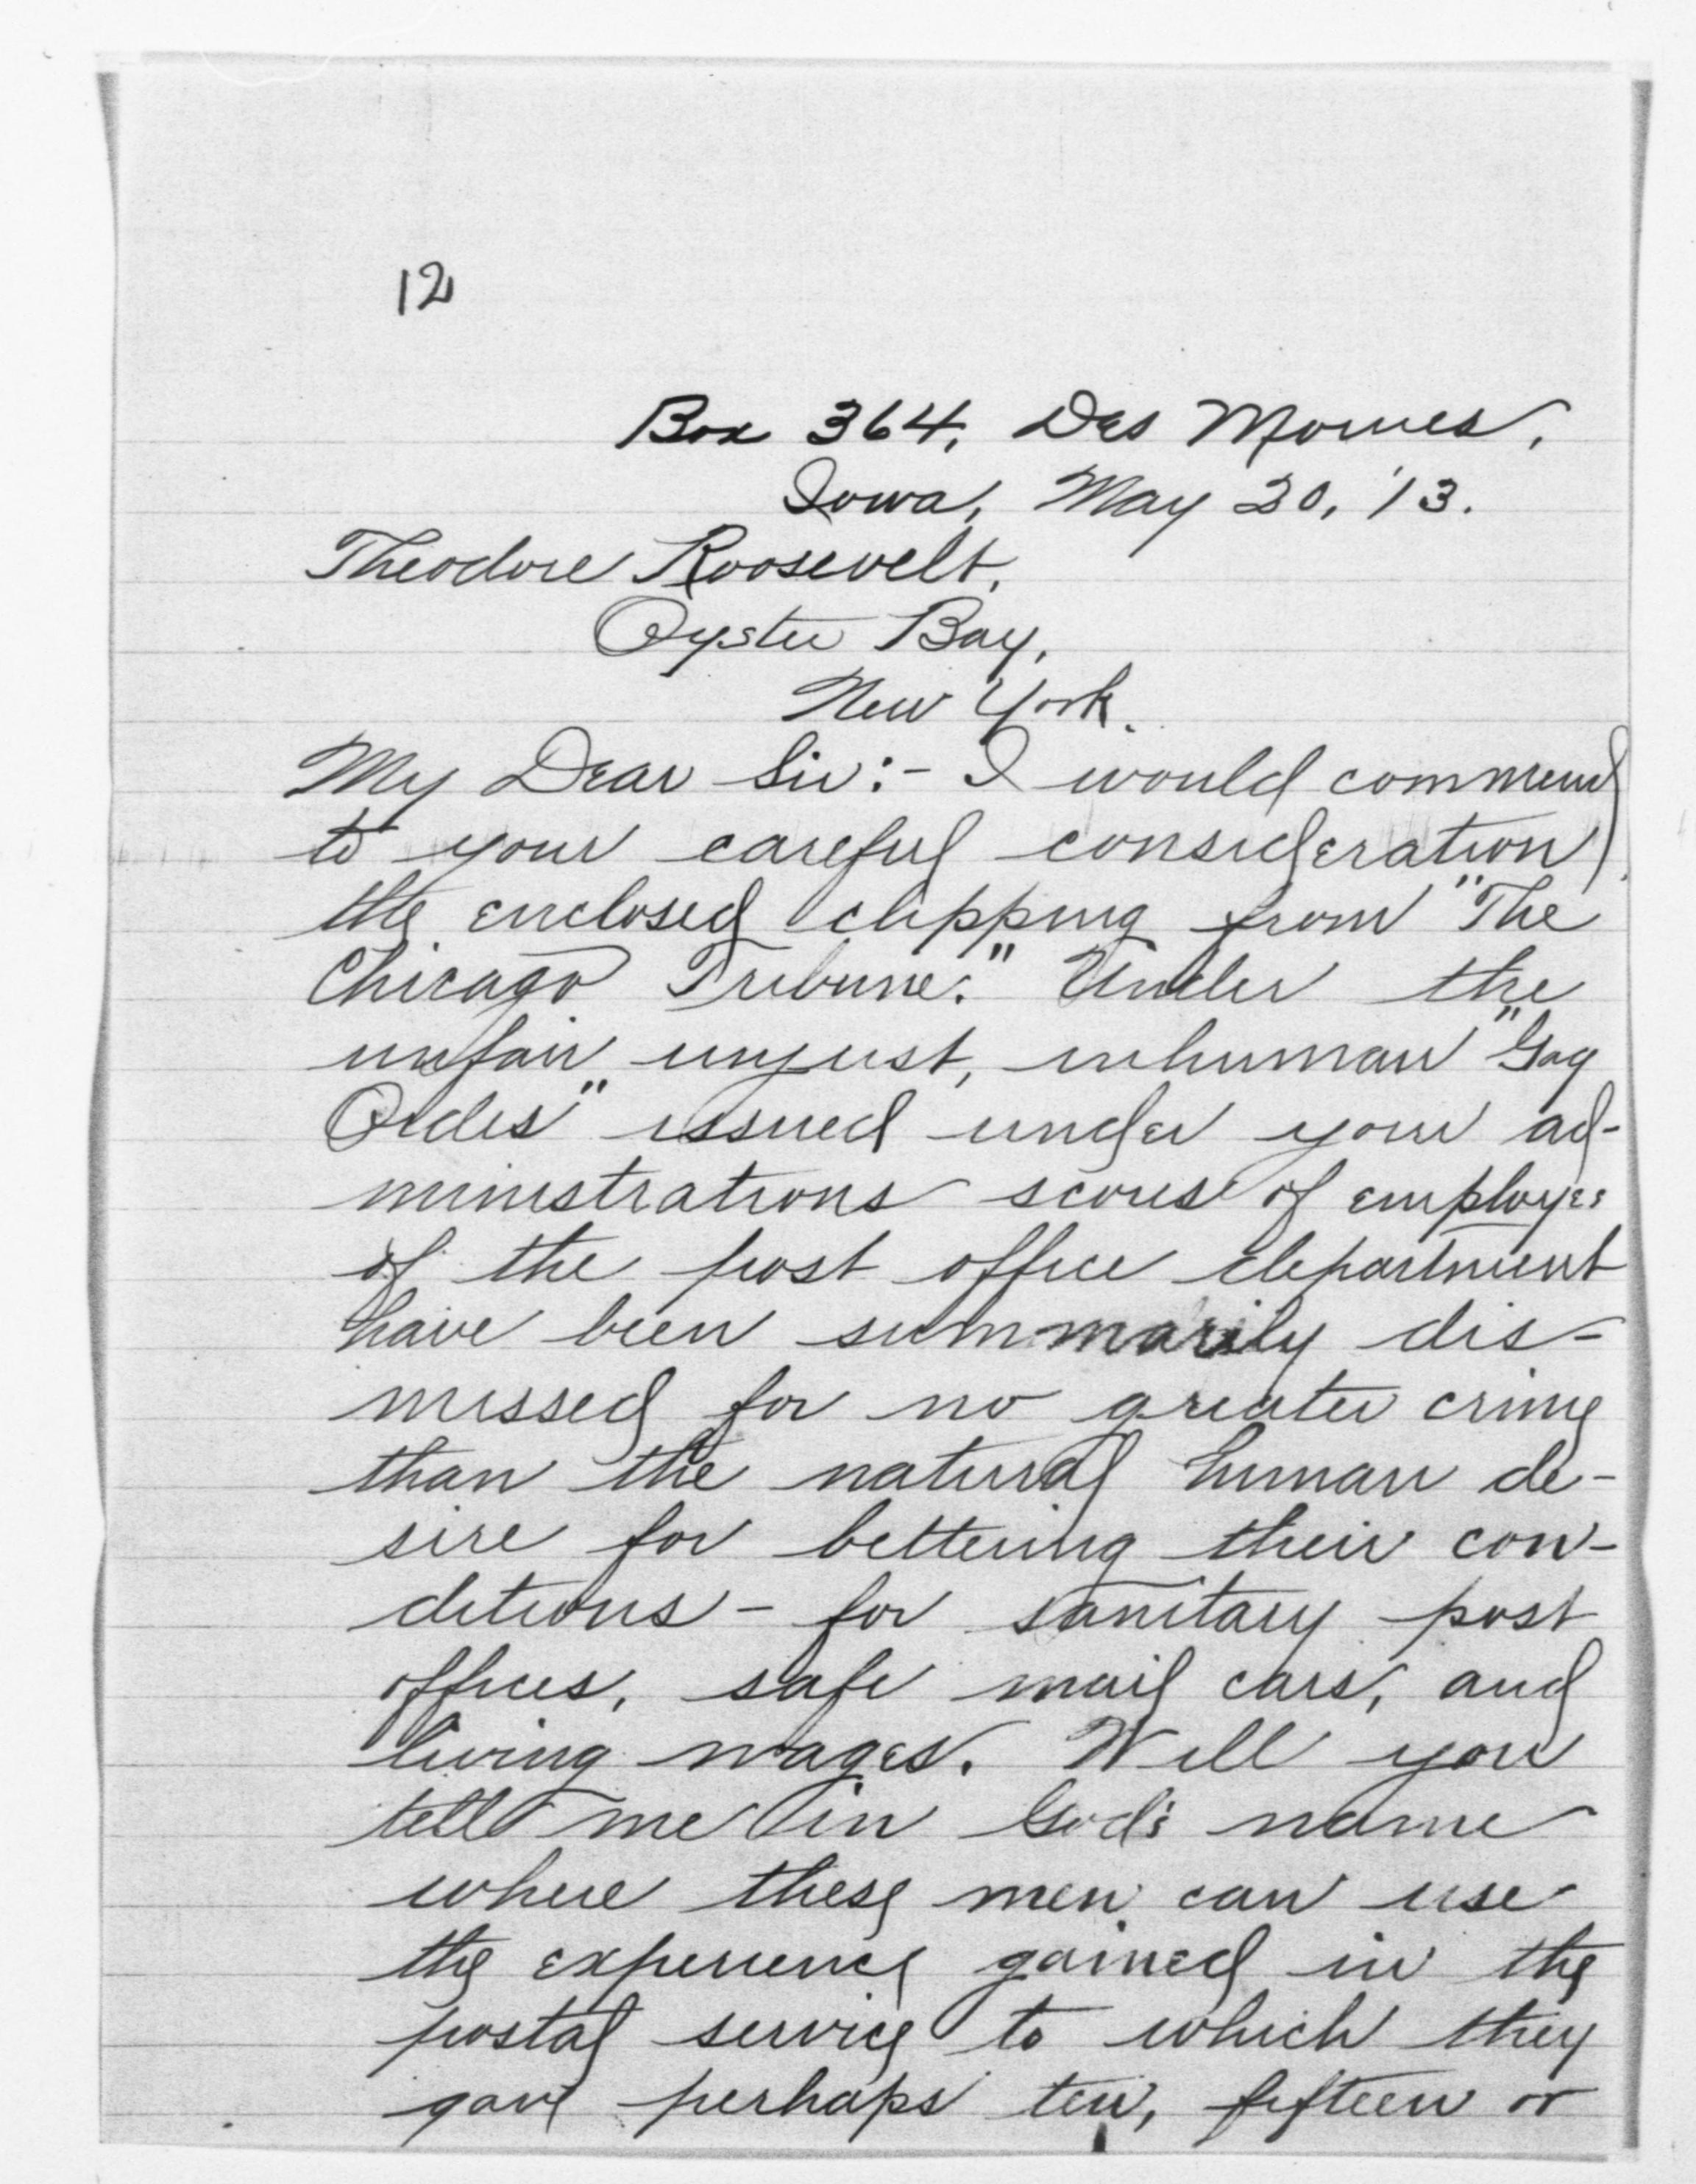 12
Box 364, Des Moines,
Iowa, May 20, '13.
Theodore Roosevelt,
Oyster Bay,
New York.
My Dear Sir:- I would commend
to your careful consideration
the enclosed clipping from "The
Chicago Tribune." Under the
unfair unjust, inhuman "Gag
Order" issued under your ad-
ministrations scores of employes
of the post office department
have been summarily dis-
missed for no greater crime
than the natural human de-
sire for bettering their con-
ditions - for sanitary post
offices, safe mail cars, and
living wages. Will you
tell me in God's name
where these men can use
the experience gained in the
postal service to which they
gave perhaps ten, fifteen or